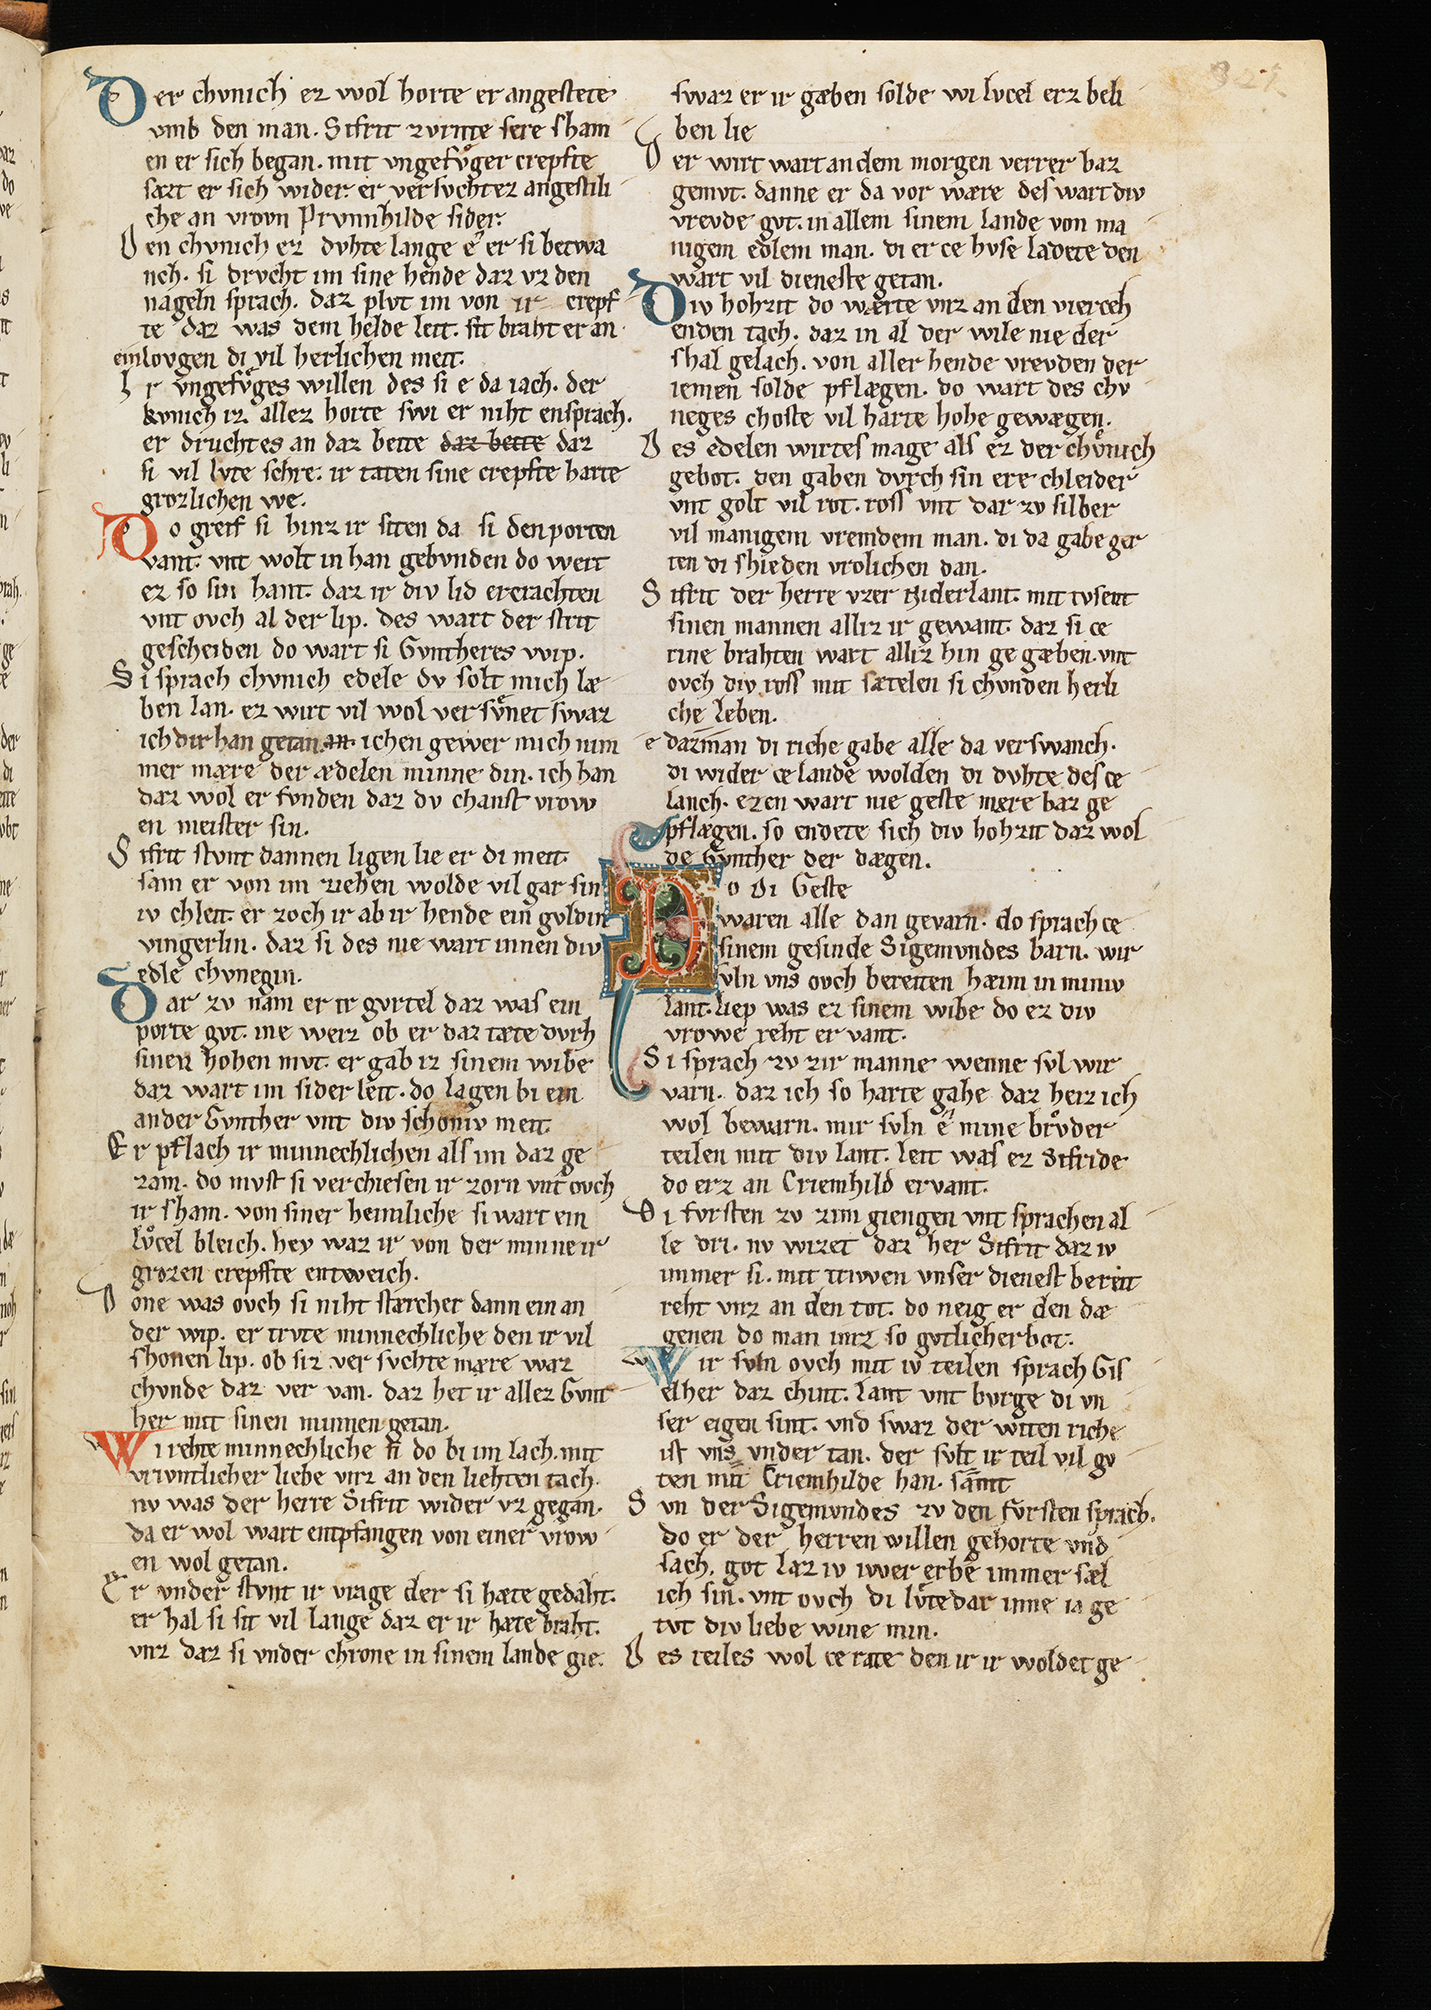 Der chvnich ez wol horte er angestete
vmb den man. Sifrit zvrnte sere sham
en er sich began. mit vngefvͦger crepfte
satzt er sich wider. er versvchtez angestili
che an vrovn Prvnnhilde sider.
Den chvnich ez dvhte lange e er si betwa
nch. si drvcht im sine hende daz vz den
nageln sprach. daz plvt im von ir crepf
te daz was dem helde leit. sit braht er an
ein lovgen di vil herlichen meit.
Ir vngefvͦges willen des si e da iach. der
kvnich iz allez horte swi er niht ensprach.
er drucht es an daz bette daz bette daz
si vil lvte schre. ir taten sine crepfte harte
grozlichen we.
Do greif si hinz ir siten da si den porten
vant. vnt wolt in han gebvnden do wert
ez so sin hant. daz ir div lid ercrachten
vnt ovch al der lip. des wart der strit
gescheiden do wart si Gvntheres wip.
Si sprach chvnich edele dv solt mich læ
ben lan. ez wirt vil wol versvͦnet swaz
ich dir han getan. ichen gewer mich nim
mer mære der ædelen minne din. ich han
daz wol er fvnden daz dv chanst vrow
en meister sin.
Sifrit stvnt dannen ligen lie er di meit.
sam er von im ziehen wolde vil gar sin
iv chleit. er zoch ir ab ir hende ein gvldin
vingerlin. daz si des nie wart innen div
edle chvnegin.
Dar zv nam er ir gvrtel daz was ein
porte gvt. ine weiz ob er daz tæte dvrh
sinen hohen mvt. er gab iz sinem wibe
daz wart im sider leit. do lagen bi ein
ander Gvnther vnt div schoniv meit.
Er pflach ir minnechlichen als im daz ge
zam. do mvst si verchiesen ir zorn vnt ovch
ir sham. von siner heimliche si wart ein
lvͦcel bleich. hey waz ir von der minne ir
grozen crepffte entweich.
Done was ovch si niht stærcher dann ein an
der wip. er trvte minnechliche den ir vil
shonen lip. ob siz versvchte mære waz
chvnde daz ver van. daz het ir allez Gvnt
her mit sinen minnen getan.
Wi rehte minnechliche si do bi im lach. mit
vrivntlicher liebe vnz an den liehten tach.
nv was der herre Sifrit wider vz gegan.
da er wol wart entpfangen von einer vrow
en wol getan.
Er vnder stvnt ir vrage der si hæte gedaht.
er hal si sit vil lange daz er ir hæte braht.
vnz daz si vnder chrone in sinem lande gie.
swaz er ir gæben solde wi lvcel erz beli
ben lie
Der wirt wart an dem morgen verrer baz
gemvt. danne er da vor wære des wart div
vrevde gvt. in allem sinem lande von ma
nigem edlem man. di er ce hvse ladete den
wart vil dieneste getan.
Div hohzit do wærte vnz an den vierceh
enden tach. daz in al der wile nie der
shal gelach. von aller hende vrevden der
iemen solde pflægen. do wart des chv
neges choste vil harte hohe gewægen.
Des edelen wirtes mage als ez der chvͦnich
gebot. den gaben dvrch sin ere chleider
vnt golt vil rot. ross vnt dar zv silber
vil manigem vremdem man. di da gabe ger
ten di shieden vrolichen dan.
Sifrit der herre vzer Niderlant. mit tvsent
sinen mannen alliz ir gewant. daz si ce
rine brahten wart alliz hin ge gæben. vnt
ovch div ross mit sætelen si chvnden herli
che leben.
e daz man di riche gabe alle da verswanch.
di wider ce lande wolden di dvhte des ce
lanch. ezen wart nie geste mere baz ge
pflægen. so endete sich div hohzit daz wol
de Gvnther der dægen.
Do di Geste
waren alle dan gevarn. do sprach ce
sinem gesinde Sigemvndes barn. wir
svln vns ovch bereiten hæim in miniv
lant. liep was ez sinem wibe do ez div
vrowe reht ervant.
Si sprach zv zir manne wenne svl wir
varn. daz ich so harte gahe daz heiz ich
wol bewarn. mir svln e mine brvͦder
teilen mit div lant. leit was ez Sifride
do erz an Criemhild ervant.
Di fvrsten zv zim giengen vnt sprachen al
le dri. nv wizet daz her Sifrit daz iv
immer si. mit triwen vnser dienest bereit
reht vnz an den tot. do neig er den dæ
genen do man imz so gvtlicherbot.
Wir svln ovch mit iv teilen sprach Gis
elher daz chint. lant vnt bvrge di vn
ser eigen sint. vnd swaz der witen riche
ist vns vnder tan. der svlt ir teil vil gv
ten mit Criemhilde han. samt
Svn der Sigemvndes zv den fvrsten sprach.
do er der herren willen gehorte vnd
sach. got laz iv iwer erbe immer sæl
ich sin. vnt ovch di lvte dar inne ia ge
tvt div liebe wine min.
Des teiles wol ce rate den ir ir woldet ge